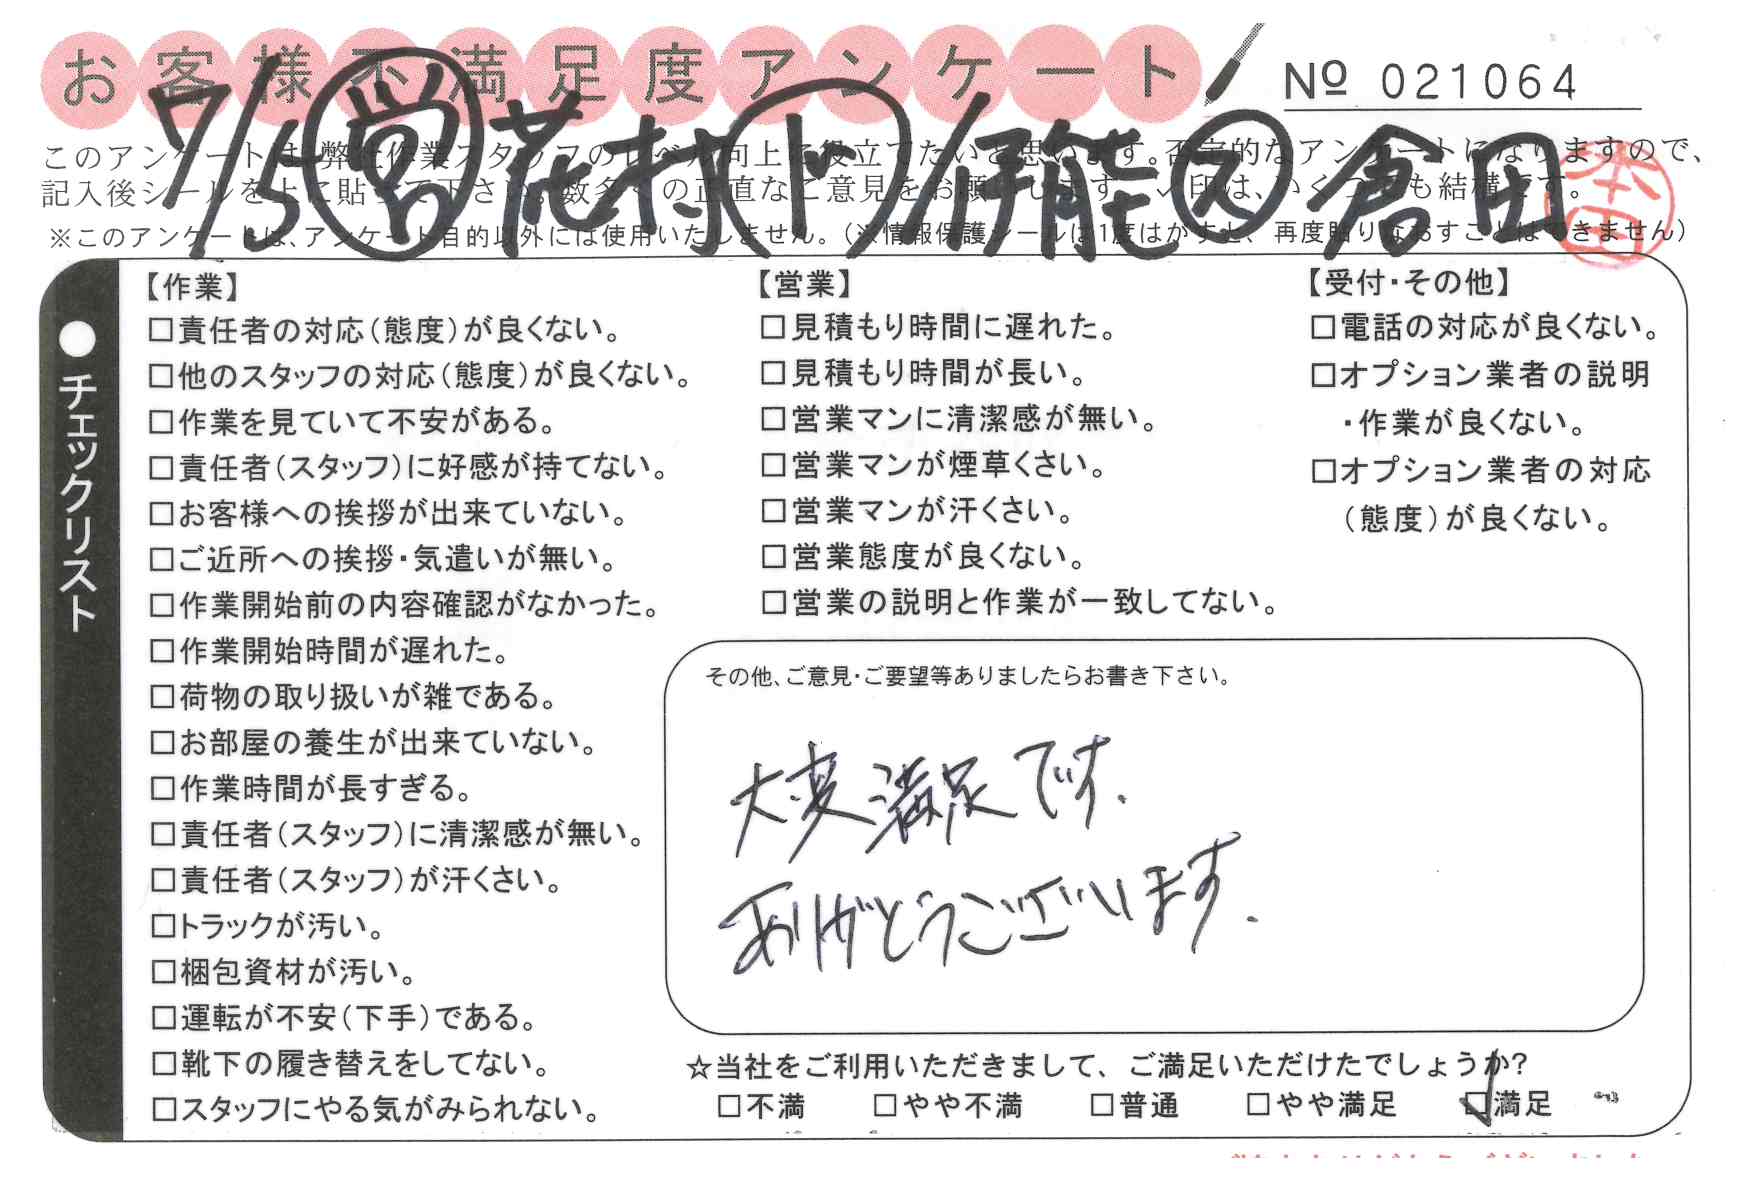 お客様不満足度アンケート
Nº 021064
7/5 営 花村 ド 伊能 ス 倉田
本田
このアンケートは、弊社作業スタッフのレベル向上に役立てたいと思います。否定的なアンケートになりますので、
記入後シールを上に貼って下さい。数多くの正直なご意見をお願いします。✓印は、いくつでも結構です。
※このアンケートは、アンケート目的以外には使用いたしません。(※情報保護シールは1度はがすと、再度貼りなおすことはできません)
●チェックリスト
【作業】
□責任者の対応(態度)が良くない。
□他のスタッフの対応(態度)が良くない。
□作業を見ていて不安がある。
□責任者(スタッフ)に好感が持てない。
□お客様への挨拶が出来ていない。
□ご近所への挨拶・気遣いが無い。
□作業開始前の内容確認がなかった。
□作業開始時間が遅れた。
□荷物の取り扱いが雑である。
□お部屋の養生が出来ていない。
□作業時間が長すぎる。
□責任者(スタッフ)に清潔感が無い。
□責任者(スタッフ)が汗くさい。
□トラックが汚い。
□梱包資材が汚い。
□運転が不安(下手)である。
□靴下の履き替えをしてない。
□スタッフにやる気がみられない。
【営業】
□見積もり時間に遅れた。
□見積もり時間が長い。
□営業マンに清潔感が無い。
□営業マンが煙草くさい。
□営業マンが汗くさい。
□営業態度が良くない。
□営業の説明と作業が一致してない。
【受付・その他】
□電話の対応が良くない。
□オプション業者の説明
・作業が良くない。
□オプション業者の対応
(態度)が良くない。
その他、ご意見・ご要望等ありましたらお書き下さい。
大変満足です.
ありがとうございます.
☆当社をご利用いただきまして、ご満足いただけたでしょうか?
□不満 □やや不満 □普通 □やや満足 ☑満足